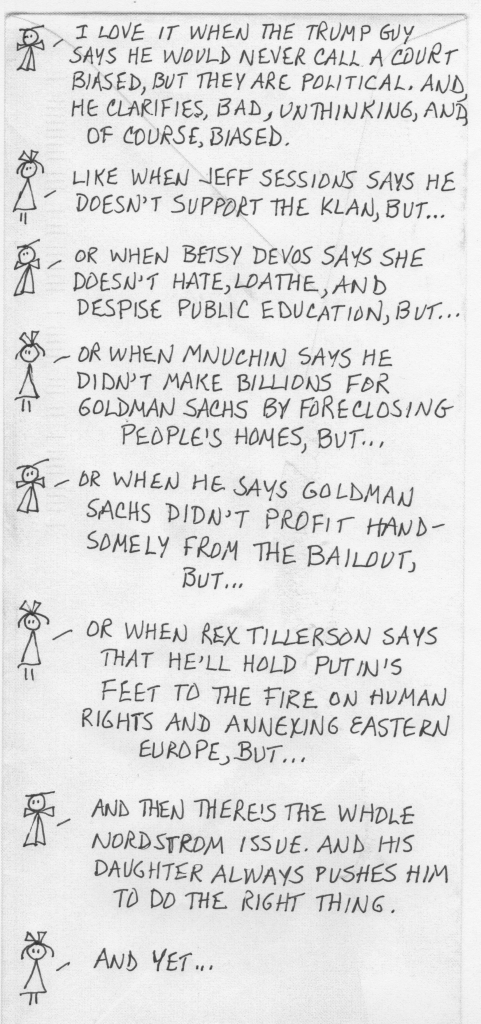 I LOVE IT WHEN THE TRUMP GUY
SAYS HE WOULD NEVER CALL A COURT
BIASED, BUT THEY ARE POLITICAL. AND,
HE CLARIFIES, BAD, UNTHINKING, AND,
OF COURSE, BIASED.
LIKE WHEN JEFF SESSIONS SAYS HE
DOESN'T SUPPORT THE KLAN, BUT...
OR WHEN BETSY DEVOS SAYS SHE
DOESN'T HATE, LOATHE, AND
DESPISE PUBLIC EDUCATION, BUT...
OR WHEN MNUCHIN SAYS HE
DIDN'T MAKE BILLIONS FOR
GOLDMAN SACHS BY FORECLOSING
PEOPLE'S HOMES, BUT...
OR WHEN HE SAYS GOLDMAN
SACHS DIDN'T PROFIT HAND-
SOMELY FROM THE BAILOUT,
BUT...
OR WHEN REX TILLERSON SAYS
THAT HE'LL HOLD PUTIN'S
FEET TO THE FIRE ON HUMAN
RIGHTS AND ANNEXING EASTERN
EUROPE, BUT...
AND THEN THERE'S THE WHOLE
NORDSTROM ISSUE. AND HIS
DAUGHTER ALWAYS PUSHES HIM
TO DO THE RIGHT THING.
AND YET...